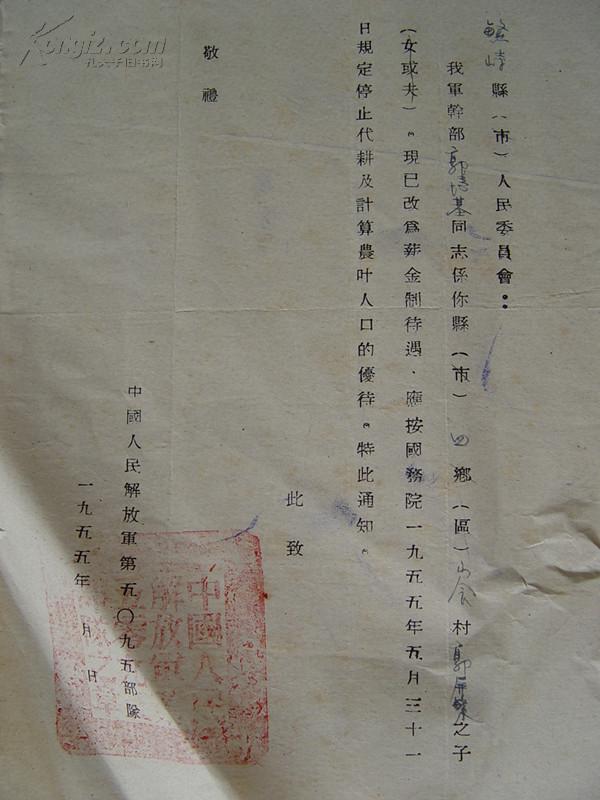 繁峙縣(市)人民委員會：
我軍幹部郭培基同志係你縣(市)四鄉(區)村郭之子
(女或夫)。現已改爲薪金制待遇、應按國務院一九五五年五月三十一
日規定停止代耕及計算農叶人口的優待。特此通知。
此致
敬禮
中國人民解放軍第五〇九五部隊
一九五五年 月 日
中國人民
解放軍
Kongfz.com
孔夫子旧书网